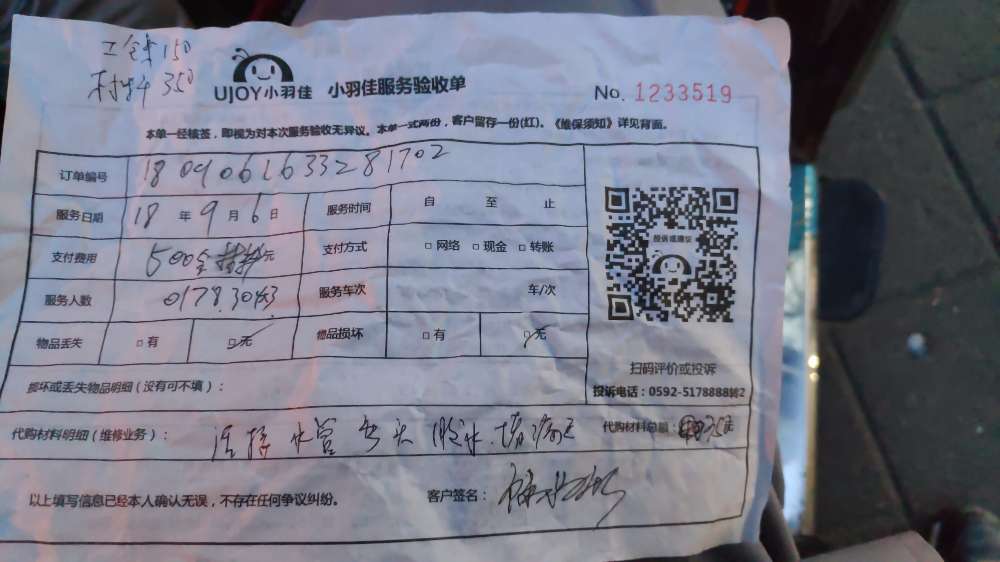 工钱150
材料350
UJOY小羽佳 小羽佳服务验收单 No. 1233519
本单一经核签，即视为对本次服务验收无异议。本单一式两份，客户留存一份(红)。《维保须知》详见背面。
订单编号 1809061633281702
服务日期 18 年 9 月 6 日 服务时间 自 至 止
支付费用 500 元 支付方式 □ 网络 □ 现金 □ 转账
服务人数 服务车次 车/次
物品丢失 □ 有 □ 无 物品损坏 □ 有 □ 无
投诉或建议
扫码评价或投诉
投诉电话：0592-5178888转2
损坏或丢失物品明细（没有可不填）：
代购材料明细（维修业务）： 连接水管 胶水 代购材料总额：
以上填写信息已经本人确认无误，不存在任何争议纠纷。 客户签名：